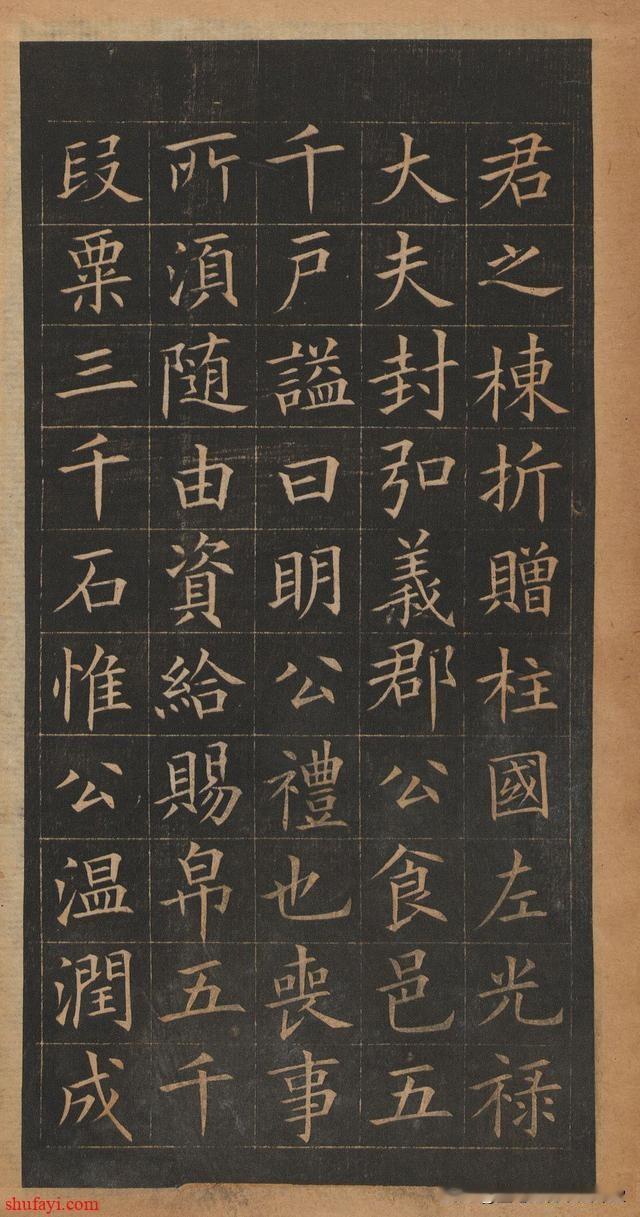 君之棟折贈柱國左光禄
大夫封弘義郡公食邑五
千戶謚曰明公禮也喪事
所須随由資給賜帛五千
段粟三千石惟公温潤成
shufayi.com